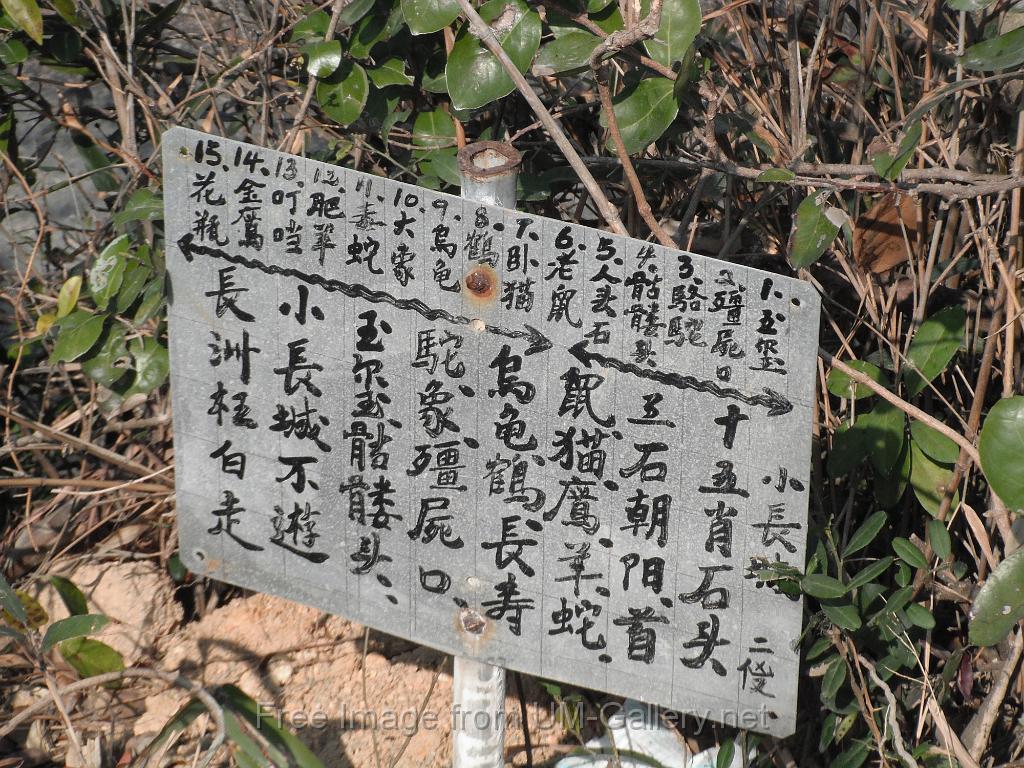 1.玉璽
2.殭屍口
3.駱駝
4.骷髏头
5.人头石
6.老鼠
7.卧猫
8.鶴
9.烏龟
10.大象
11.毒蛇
12.肥羊
13.叮噹
14.金鷹
15.花瓶
小長城
二俊
十五肖石头
兰石朝阳首
鼠猫鷹羊蛇
烏龟鶴長寿
駝象殭屍口
玉尔玉骷髅头
小長城不遊
長洲枉白走
Free Image from UM-Gallery.net